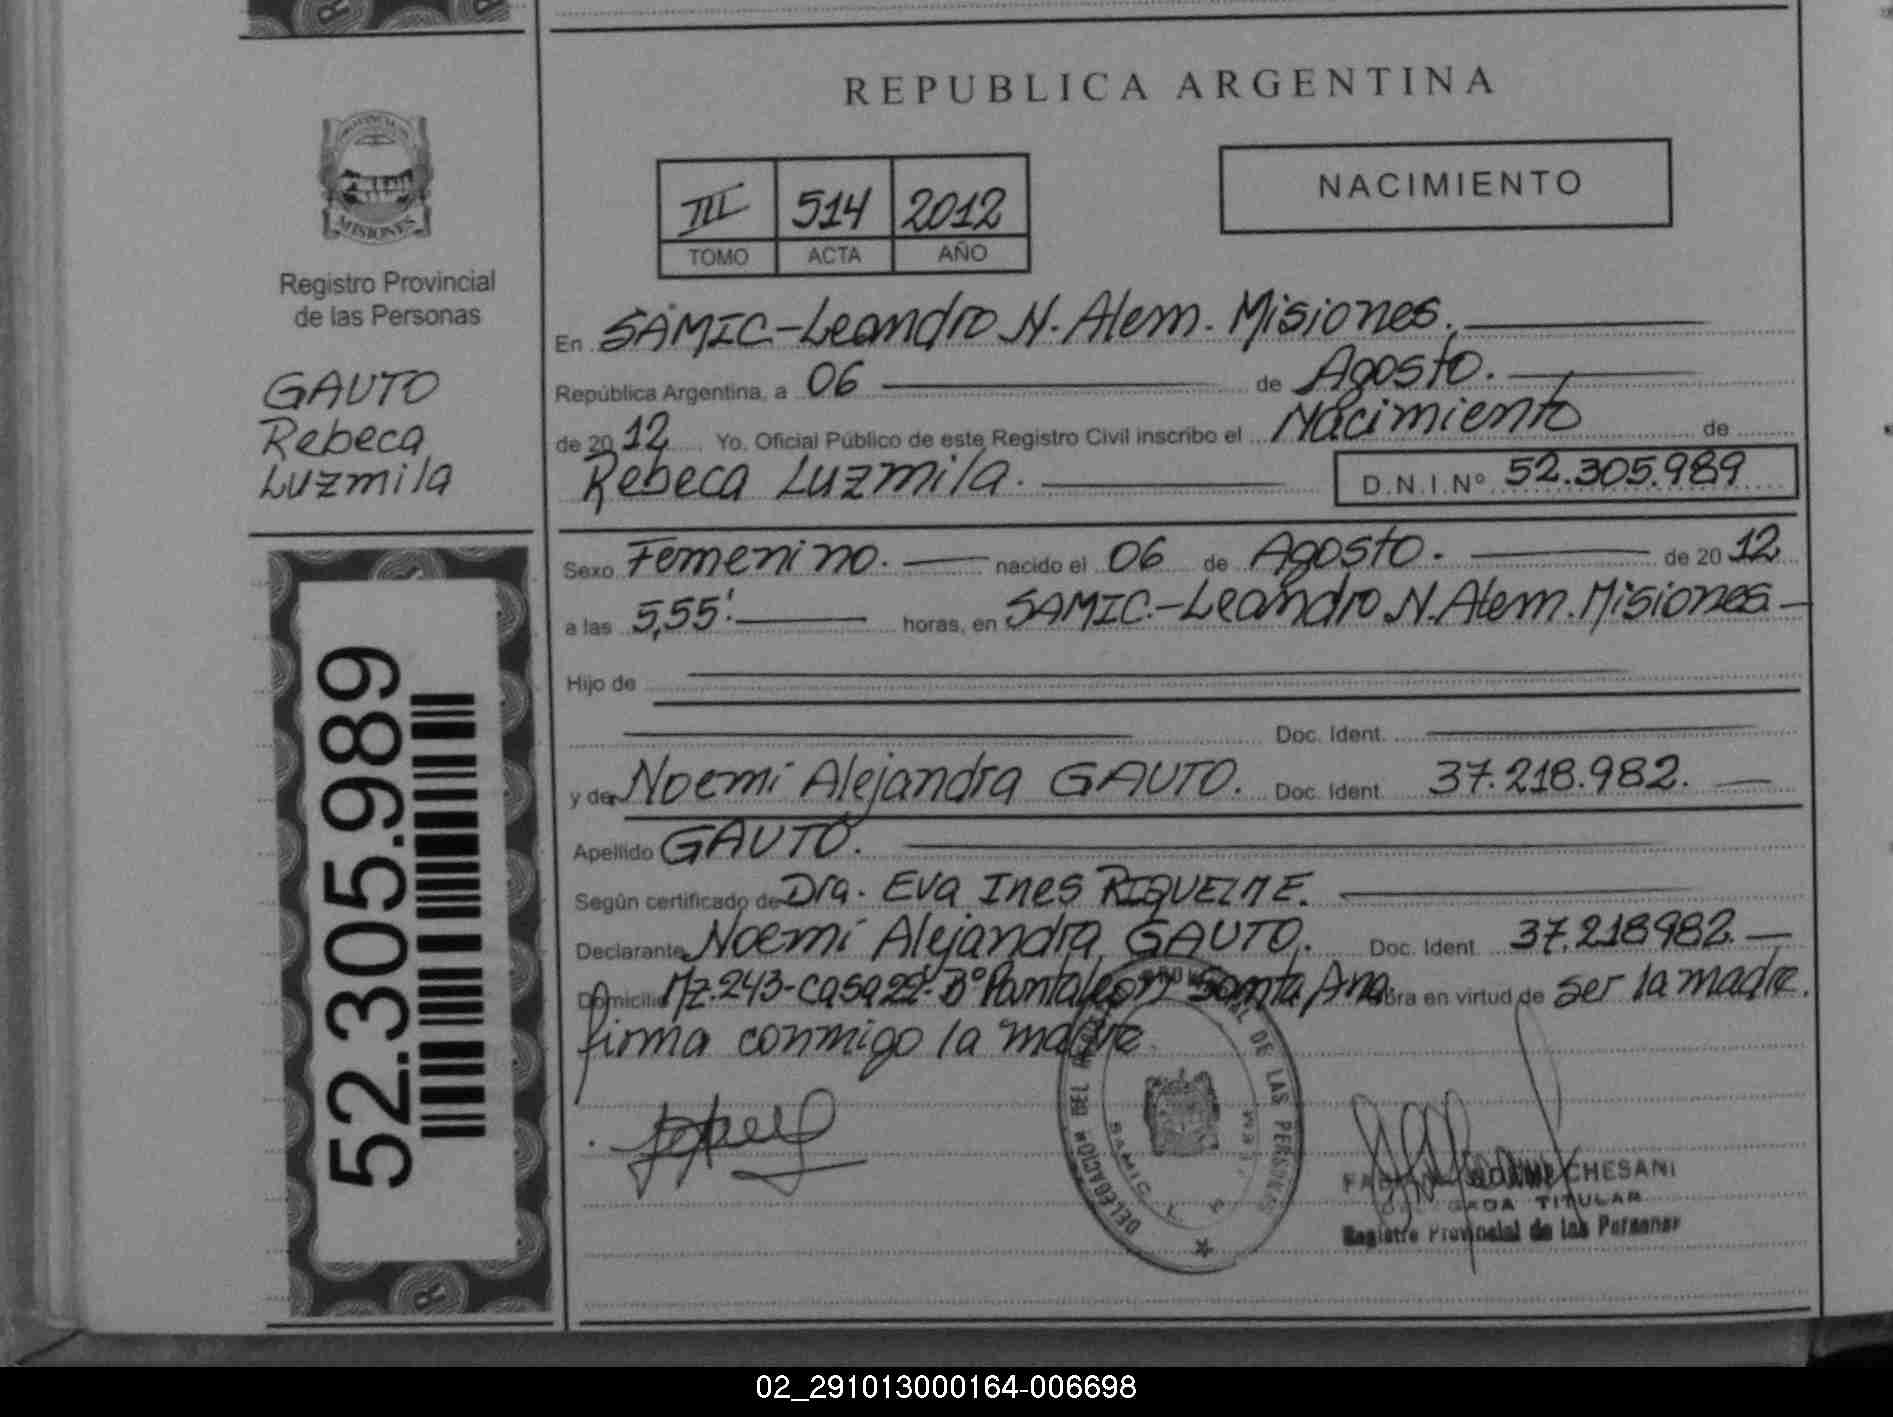 REPUBLICA ARGENTINA
PROVINCIA DE MISIONES
Registro Provincial
de las Personas
GAUTO
Rebeca
Luzmila
52.305.989
III 514 2012
TOMO ACTA AÑO
NACIMIENTO
En SAMIC-Leandro N. Alem. Misiones.
República Argentina, a 06 de Agosto.
de 2012 Yo, Oficial Público de este Registro Civil inscribo el Nacimiento de
Rebeca Luzmila. D.N.I.Nº 52.305.989
Sexo Femenino. nacido el 06 de Agosto. de 2012
a las 5,55' horas, en SAMIC.-Leandro N. Alem. Misiones
Hijo de
Doc. Ident.
y de Noemi Alejandra GAUTO. Doc. Ident. 37.218.982.
Apellido GAUTO.
Según certificado de Dra. Eva Ines RIQUELME.
Declarante Noemi Alejandra GAUTO. Doc. Ident 37.218982.
Domicilio Mz.243-casa22-Bº Pantaleon Santa Ana. obra en virtud de ser la madre.
firma conmigo la madre.
DELEGACION DEL REGISTRO PROVINCIAL DE LAS PERSONAS
SAMIC
CHESANI
TITULAR
Registro Provincial de las Personas
02_291013000164-006698